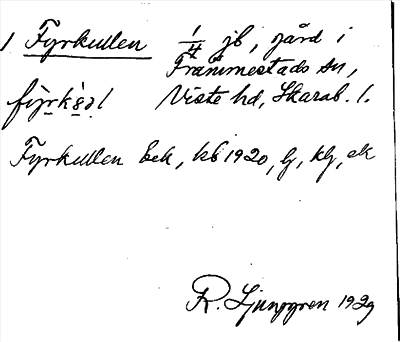 1 Fyrkullen 1/4 jb, gård i
Främmestads sn,
Viste hd, Skarab. l.
Fyrkullen bek, kb 1920, lj, klj, ek
R. Ljunggren 1929